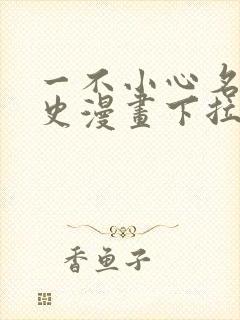 一不小心名
史漫畫下拉
香鱼子